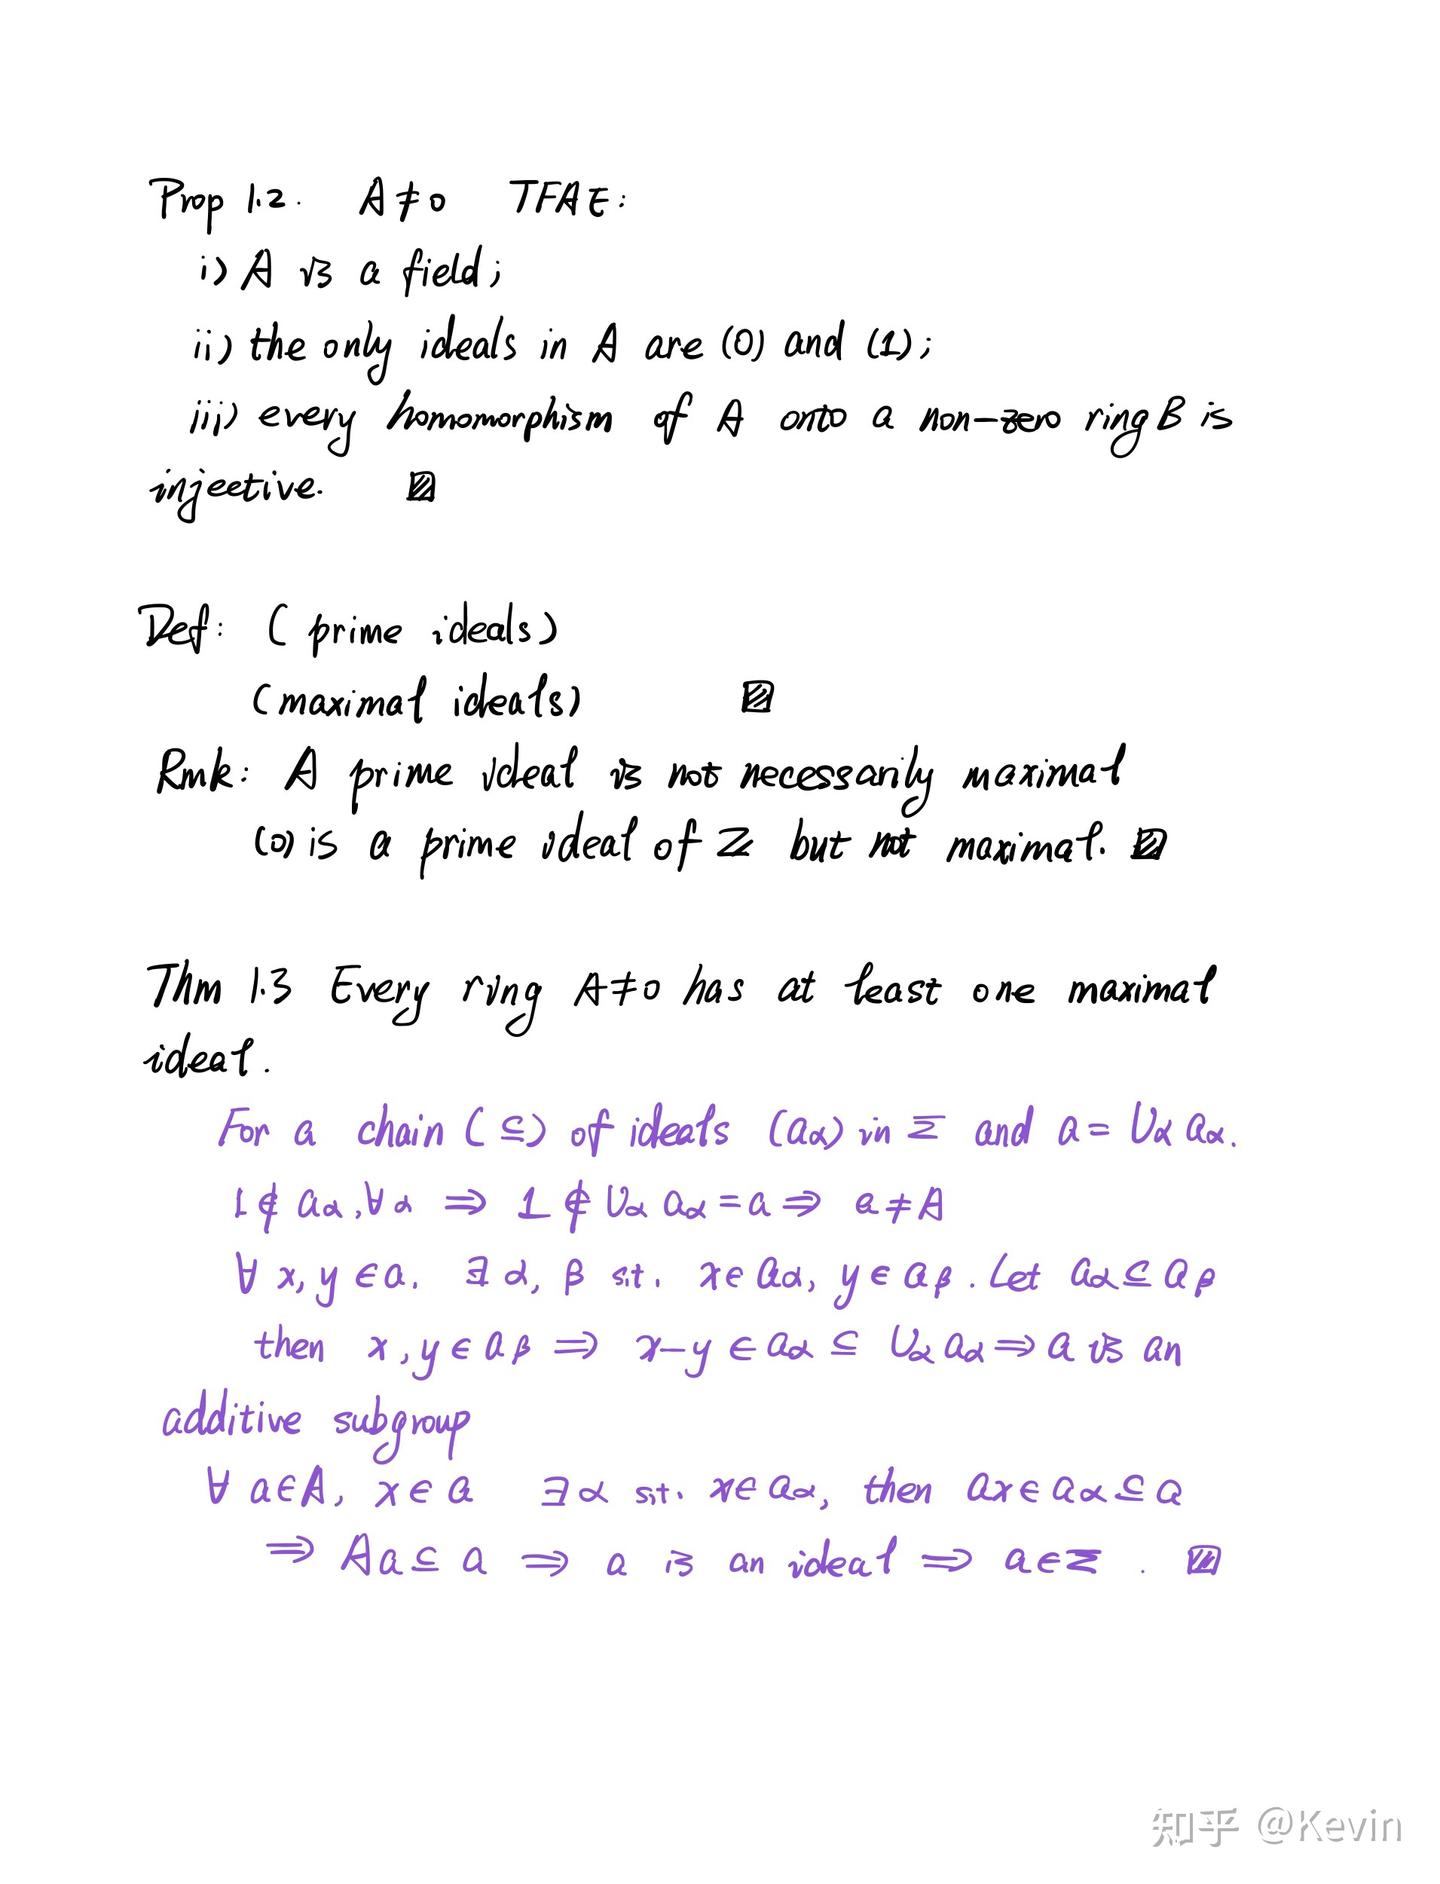 Prop 1.2. A≠0 TFAE:
i) A is a field;
ii) the only ideals in A are (0) and (1);
iii) every homomorphism of A onto a non-zero ring B is
injective. ▨
Def: (prime ideals)
(maximal ideals) ▨
Rmk: A prime ideal is not necessarily maximal
(0) is a prime ideal of ℤ but not maximal. ▨
Thm 1.3 Every ring A≠0 has at least one maximal
ideal.
For a chain (⊆) of ideals (aα) in Σ and a = ∪α aα.
1 ∉ aα, ∀α ⇒ 1 ∉ ∪α aα = a ⇒ a ≠ A
∀ x, y ∈ a. ∃ α, β s.t. x ∈ aα, y ∈ aβ. Let aα ⊆ aβ
then x, y ∈ aβ ⇒ x−y ∈ aα ⊆ ∪α aα ⇒ a is an
additive subgroup
∀ a ∈ A, x ∈ a ∃ α s.t. x ∈ aα, then ax ∈ aα ⊆ a
⇒ Aa ⊆ a ⇒ a is an ideal ⇒ a ∈ Σ. ▨
知乎 @Kevin